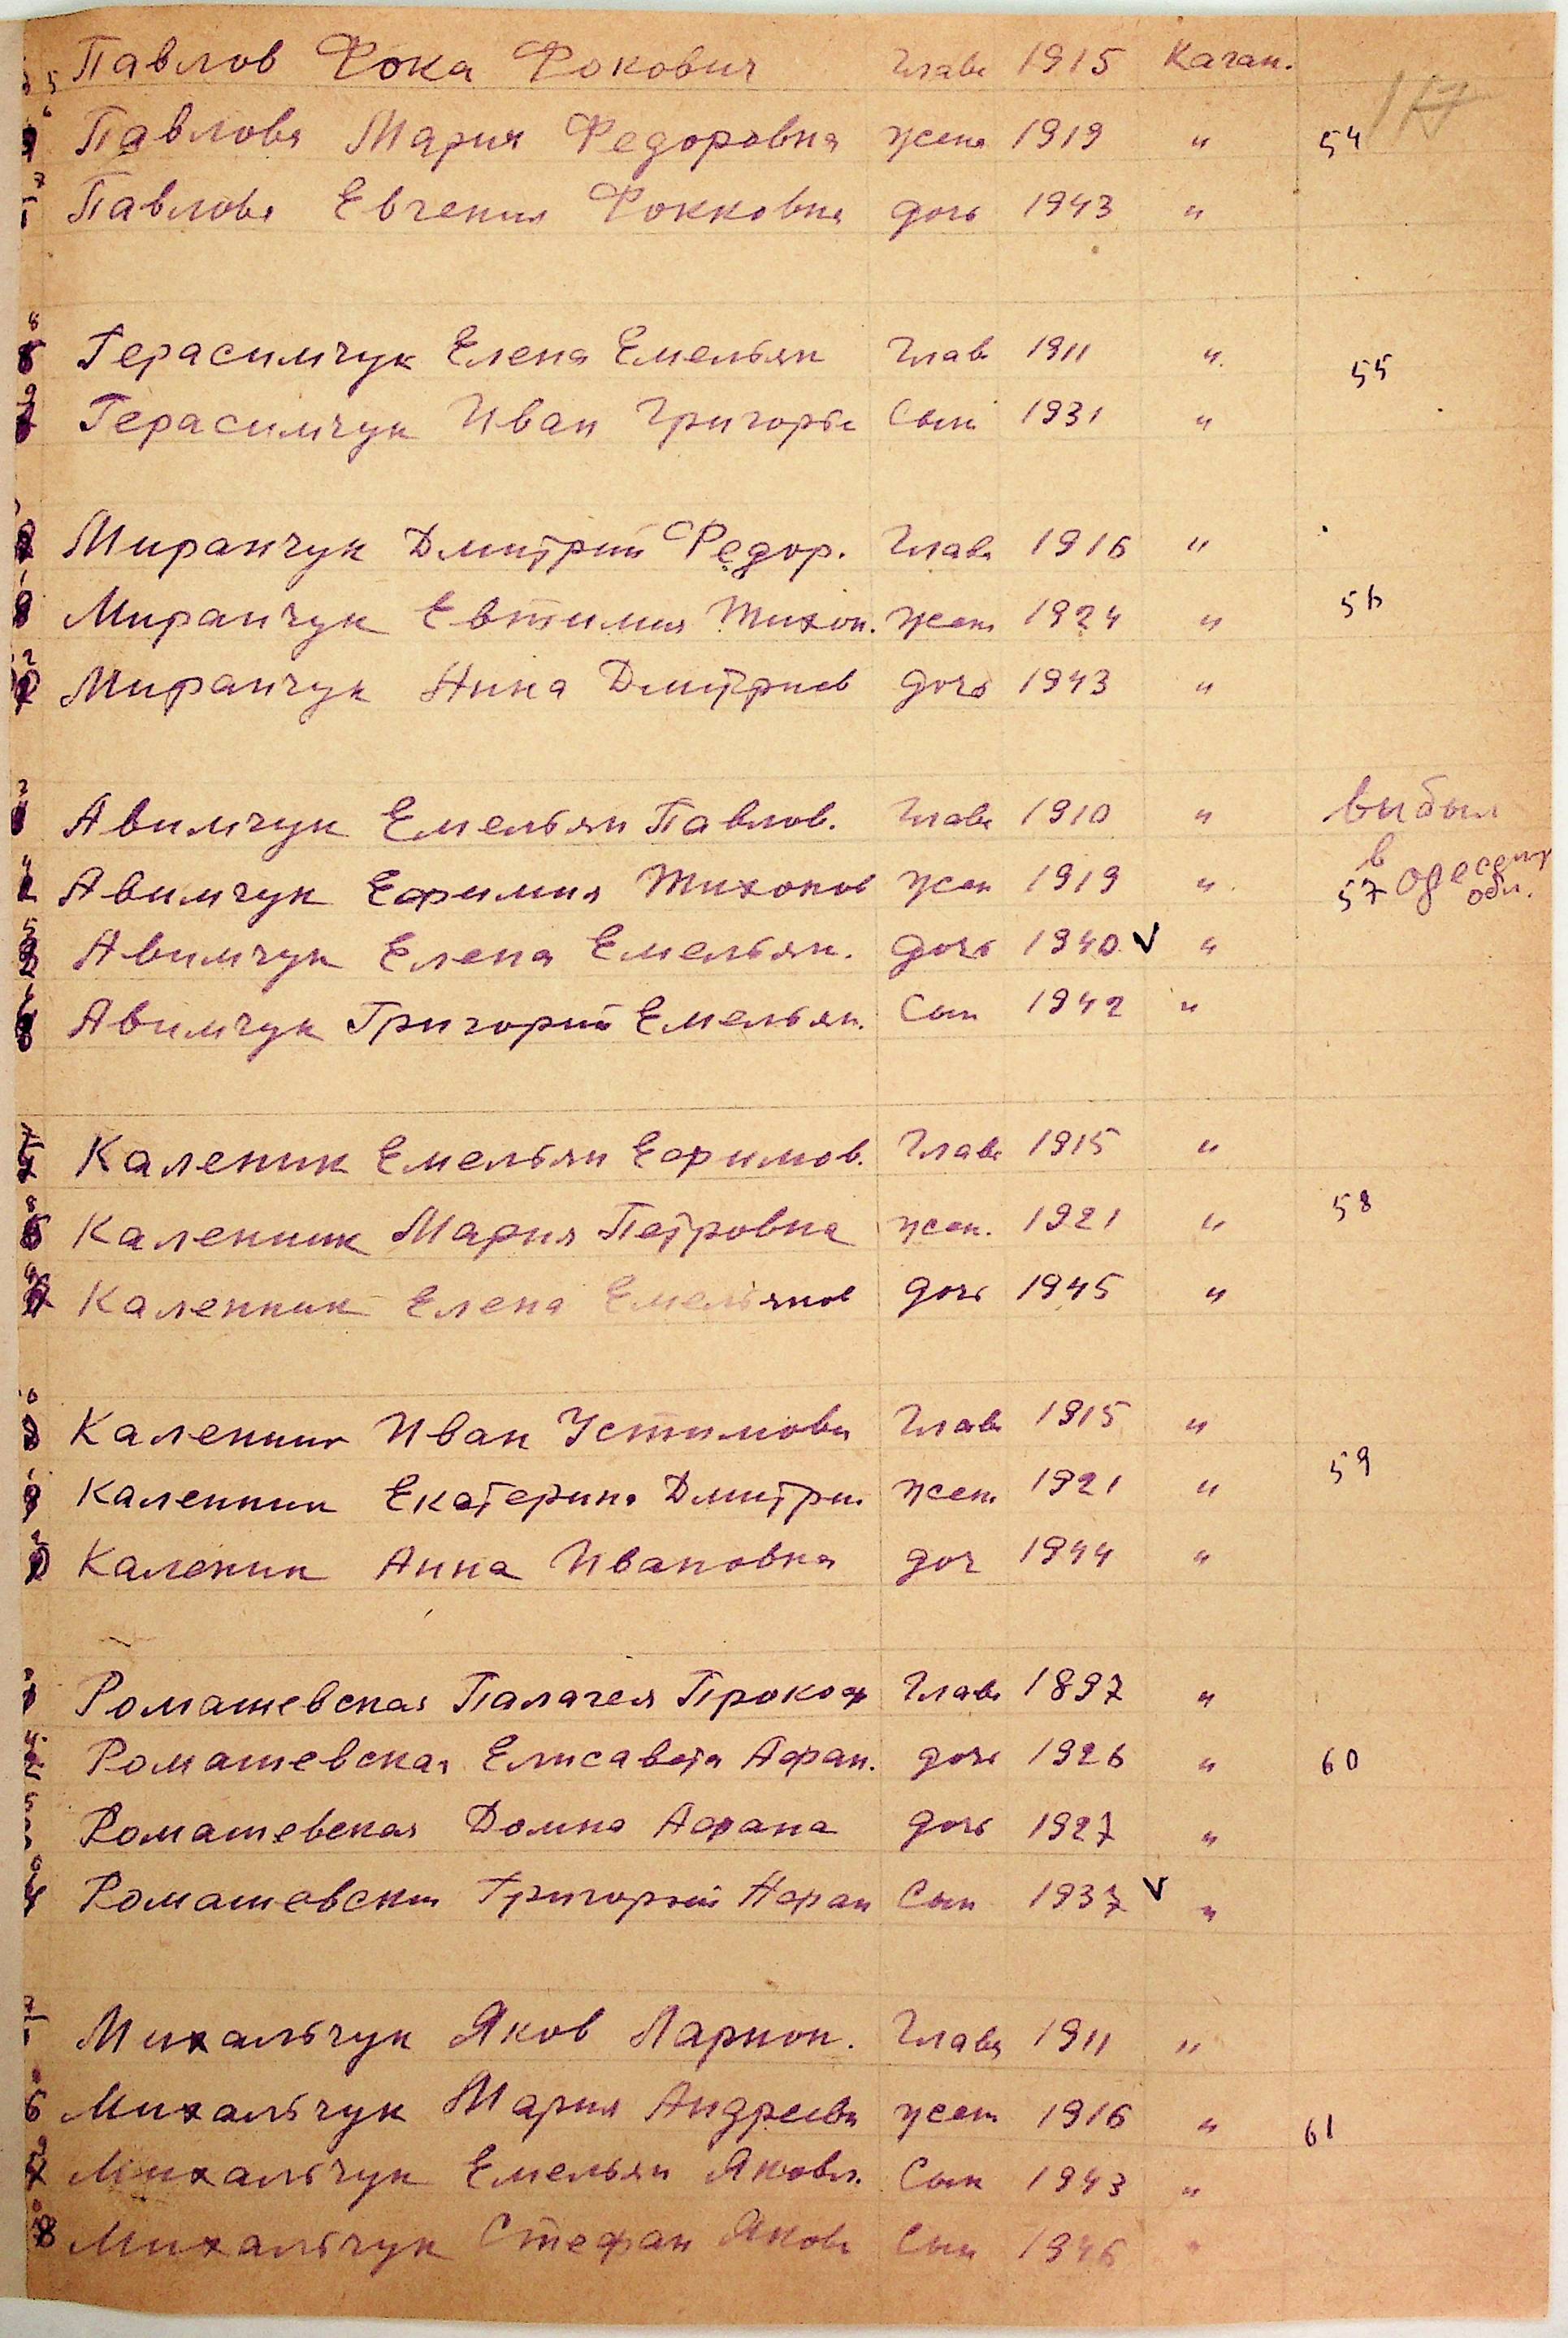 Павлов Фока Фокович глава 1915 Каган.
117
Павлова Мария Федоровна жена 1919 " 54
Павлова Евгения Фокковна дочь 1943 "
Герасимчук Елена Емельян глав 1911 " 55
Герасимчук Иван Григорье Сын 1931 "
Миранчук Дмитрий Федор. глава 1916 "
Миранчук Евтимия Тихон. жена 1924 " 56
Миранчук Нина Дмитриев дочь 1943 "
Авимчук Емельян Павлов. глава 1910 " выбыл
Авимчук Ефимия Тихонов жен 1919 " в 57 Одесскую обл.
Авимчук Елена Емельян. дочь 1940 V "
Авимчук Григорий Емельян. Сын 1942 "
Каленик Емельян Ефимов. глава 1915 "
Каленник Мария Петровна жен. 1921 " 58
Каленник Елена Емельянов дочь 1945 "
Каленник Иван Устимови глава 1915 "
Каленник Екатерина Дмитри. жена 1921 " 59
Каленик Анна Ивановна доч 1944 "
Ромашевская Палагея Прокоф глава 1897 "
Ромашевская Елисавета Афан. дочь 1926 " 60
Ромашевская Домна Афана дочь 1927 "
Ромашевский Григорий Афан Сын 1937 V "
Михальчук Яков Ларион. глава 1911 "
6 Михальчук Мария Андреевн жена 1916 " 61
7 Михальчук Емельян Яковл. Сын 1943 "
8 Михальчук Стефан Якове Сын 1946 "